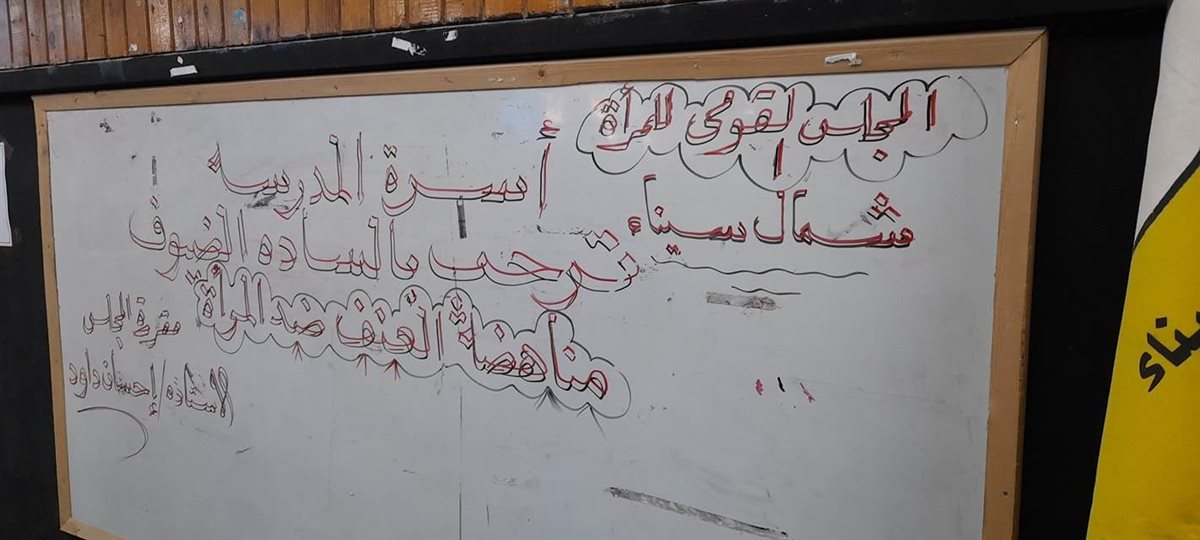 المجلس القومى للمرأة
شمال سيناء
أسرة المدرسة
ترحب بالساده الضيوف
مناهضة العنف ضد المرأة
مقررة المجلس
الاستاذه/إحسان داود